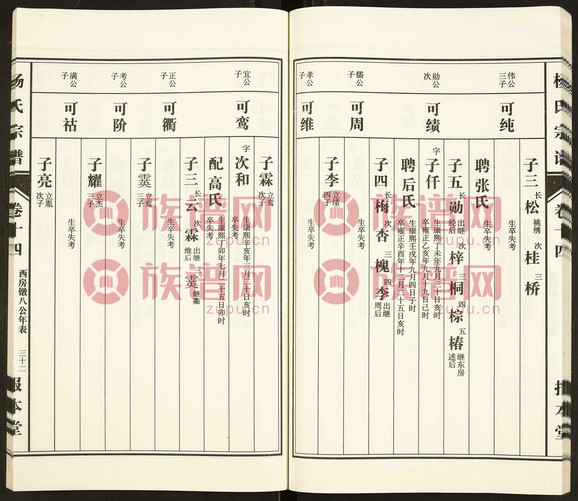 伟公三子
可纯
生卒失考
子三 长松 桃绣 次桂 三桥
勋公次
可绩
聘张氏
生卒失考
子五 长勋 出继经后 次梓 三桐 四棕 五椿 继东房述后
字子仟
生康熙丁未年九月十九日亥时
卒雍正乙亥年九月十九日己时
聘后氏
生康熙壬戌年九月四日子时
卒雍正辛酉年十一月二十五日亥时
子四 长梅 次杏 三槐 四李 出继周后
儒公子
可周
生卒失考
子李 立绩四子
孝公子
可维
生卒失考
子霖 立鸾次子
宜公子
可鸾
字次和
生康熙辛亥年二月二十日亥时
卒失考
配高氏
生康熙癸卯年七月二十五日卯时
卒失考
子三 长云 次霖 出继维后 三霙 出继衢
正公子
可衢
生卒失考
子霙 立鸾三子
考公子
可阶
生卒失考
子耀 立杰三子
满公子
可祜
生卒失考
子亮 立胤次子
杨氏宗谱
卷十四
西房徵八公年表
三十二
报本堂
杨氏宗谱
卷十四
报本堂
族谱网
zupu.cn
族谱网
zupu.cn
族谱网
zupu.cn
族谱网
zupu.cn